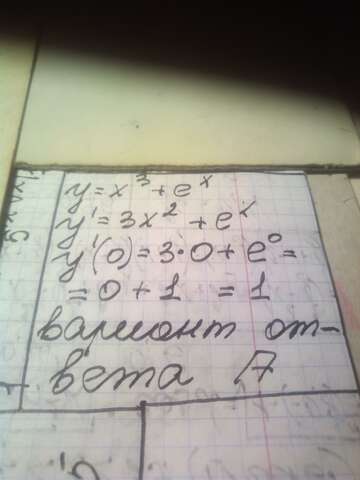 y = x³ + eˣ
y' = 3x² + eˣ
y'(0) = 3·0 + e⁰ =
= 0 + 1 = 1
вариант от-
вета А